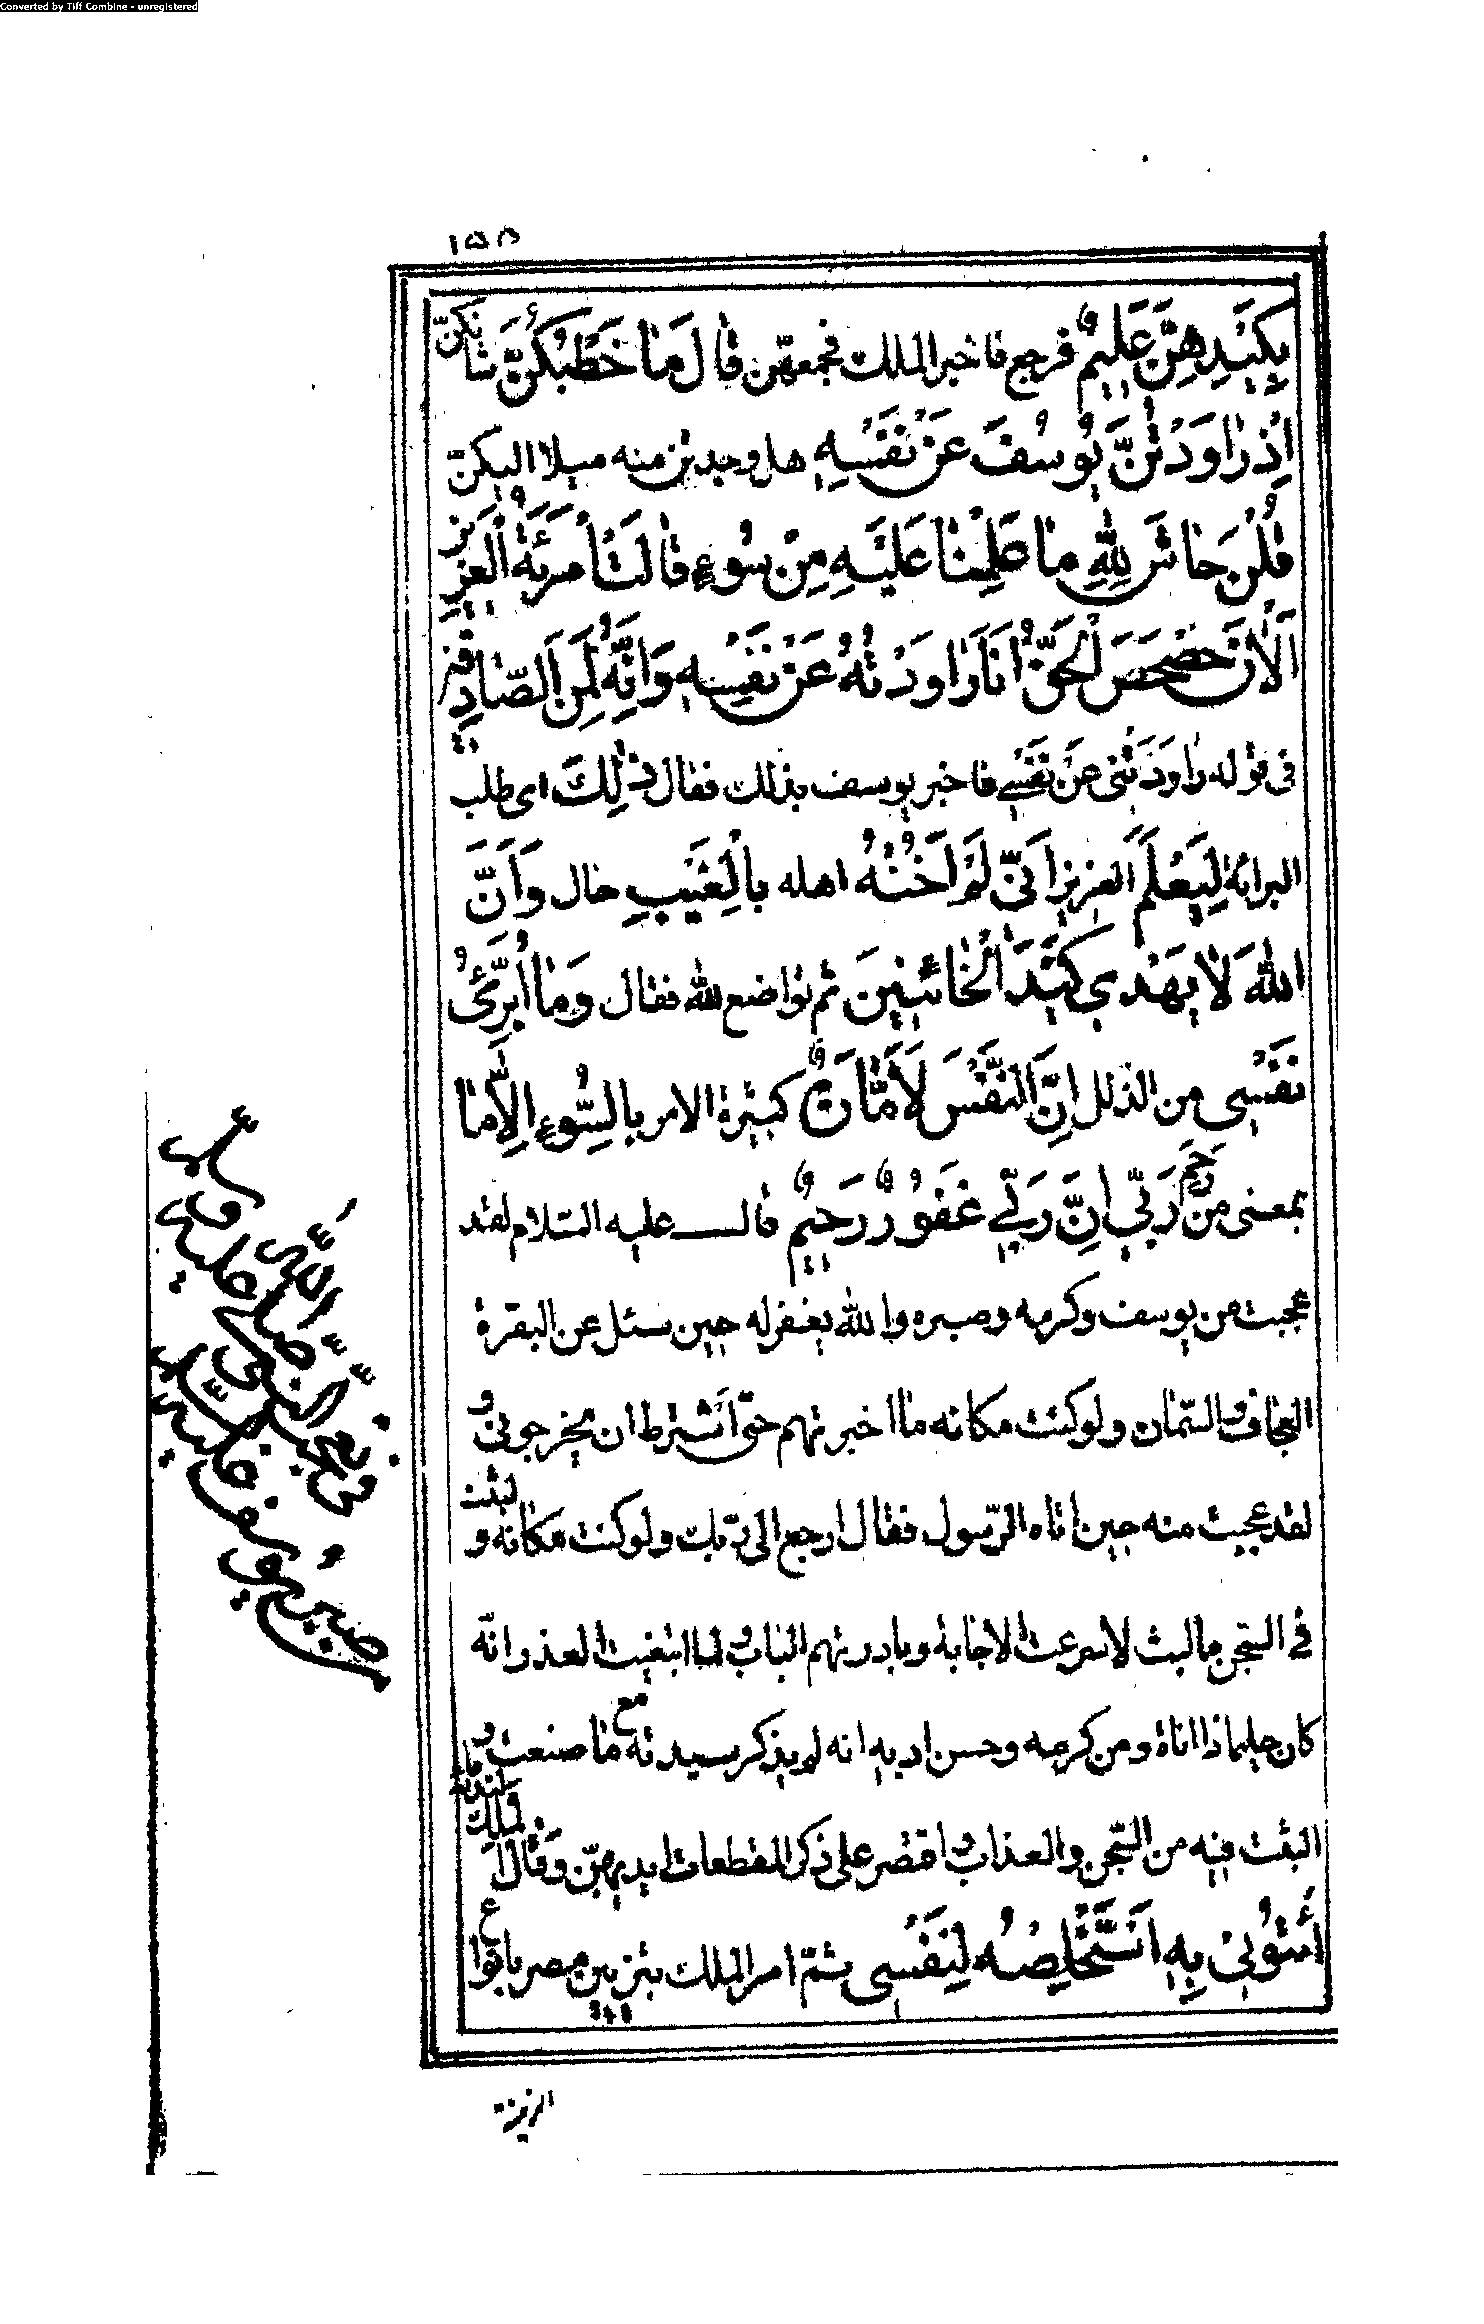 Converted by Tiff Combine - unregistered
١٥٥
بِكَيْدِهِنَّ عَلِيمٌ فرجع فاخبر الملك فجمعهن قَالَ مَا خَطْبُكُنَّ شأنكنّ
اِذْ رَاوَدْتُنَّ يُوسُفَ عَنْ نَفْسِهِ هل وجدتن منه ميلا اليكنّ
قُلْنَ حَاشَ لِلّٰهِ مَا عَلِمْنَا عَلَيْهِ مِنْ سُوءٍ قَالَتِ امْرَئَةُ الْعَزِيزِ
اَلْآنَ حَصْحَصَ الْحَقُّ اَنَا رَاوَدْتُهُ عَنْ نَفْسِهِ وَاِنَّهُ لَمِنَ الصَّادِقِينَ
فى قوله رَاوَدَتْنِى عَنْ نَفْسِى فاخبر يوسف بذلك فقال ذٰلِكَ اى طلب
البرائة لِيَعْلَمَ العزيز اَنِّى لَمْ اَخُنْهُ اهله بِالْغَيْبِ حال وَاَنَّ
اللّٰهَ لَا يَهْدِي كَيْدَ الْخَائِنِينَ ثم تواضع لله فقال وَمَا اُبَرِّئُ
نَفْسِى من الذلل اِنَّ النَّفْسَ لَاَمَّارَةٌ كثيرة الامر بِالسُّوءِ اِلَّا مَا
بمعنى من رَحِمَ رَبِّي اِنَّ رَبِّي غَفُورٌ رَحِيمٌ قال عليه السّلام لقد
عجبت من يوسف وكرمه وصبره والله يغفر له حين سئل عن البقرة
العجاف والسّمان ولو كنت مكانه ما اخبرتهم حتى اشترط ان يخرجونى و
لقد عجبت منه حين اتاه الرّسول فقال ارجع الى ربّك ولو كنت مكانه و لبثت
فى السّجن ما لبث لاسرعت الاجابة وبادرتهم الباب ولما ابتغيت العذر انّه
كان حليما ذا اناة ومن كرمه وحسن ادبه انه لم يذكر سيدته مع ما صنعت و
البثت فيه من السّجن والعذاب واقتصر على ذكر المقطعات ايديهنّ وَقَالَ الْمَلِكُ
اُئْتُونِىْ بِهِ اَسْتَخْلِصْهُ لِنَفْسِى ثمّ امر الملك بتزيين مصر بانواع
الزينة
فى تعجب النبى
صلى الله عليه و
صبر يوسف عليه